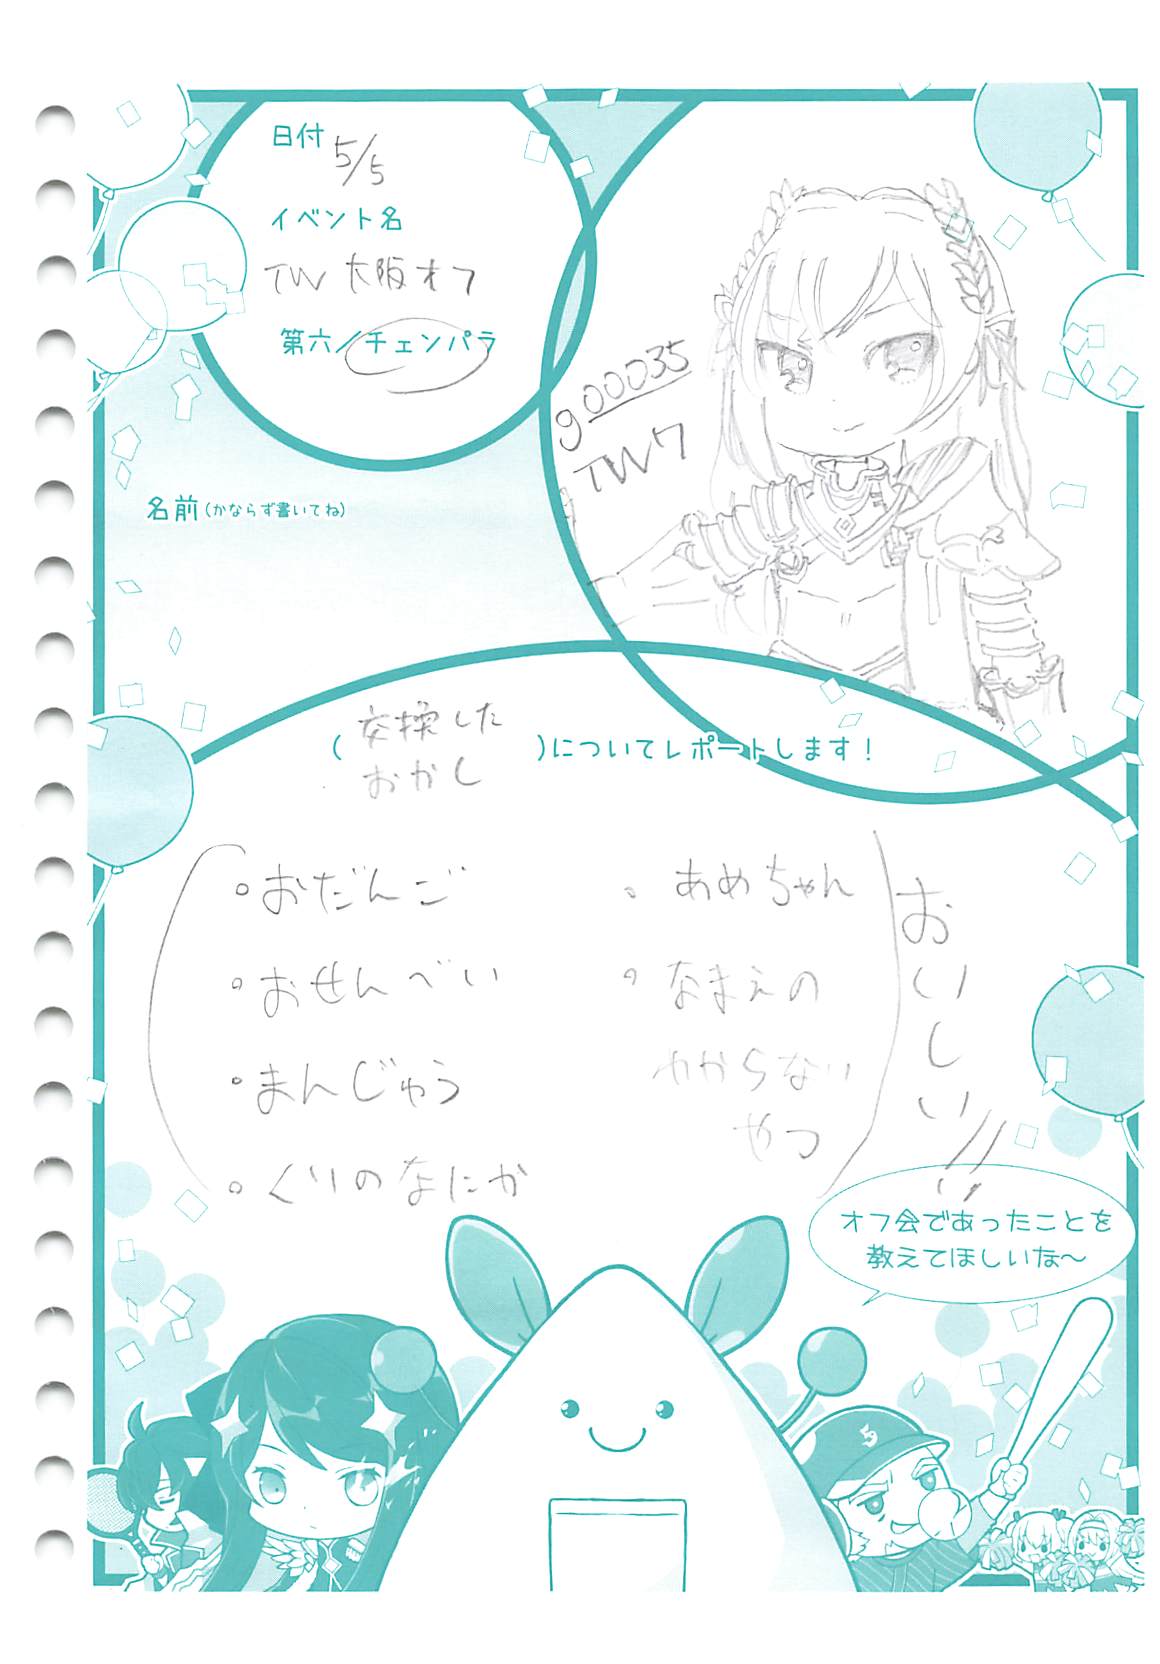 日付
5/5
イベント名
TW 大阪オフ
第六/チェンパラ
g00035
TW7
名前(かならず書いてね)
(交換した
おかし
)についてレポートします!
。おだんご
。おせんべい
。まんじゅう
。くりのなにか
。あめちゃん
。なまえの
わからない
やつ
おいしい!!
オフ会であったことを
教えてほしいな〜
5